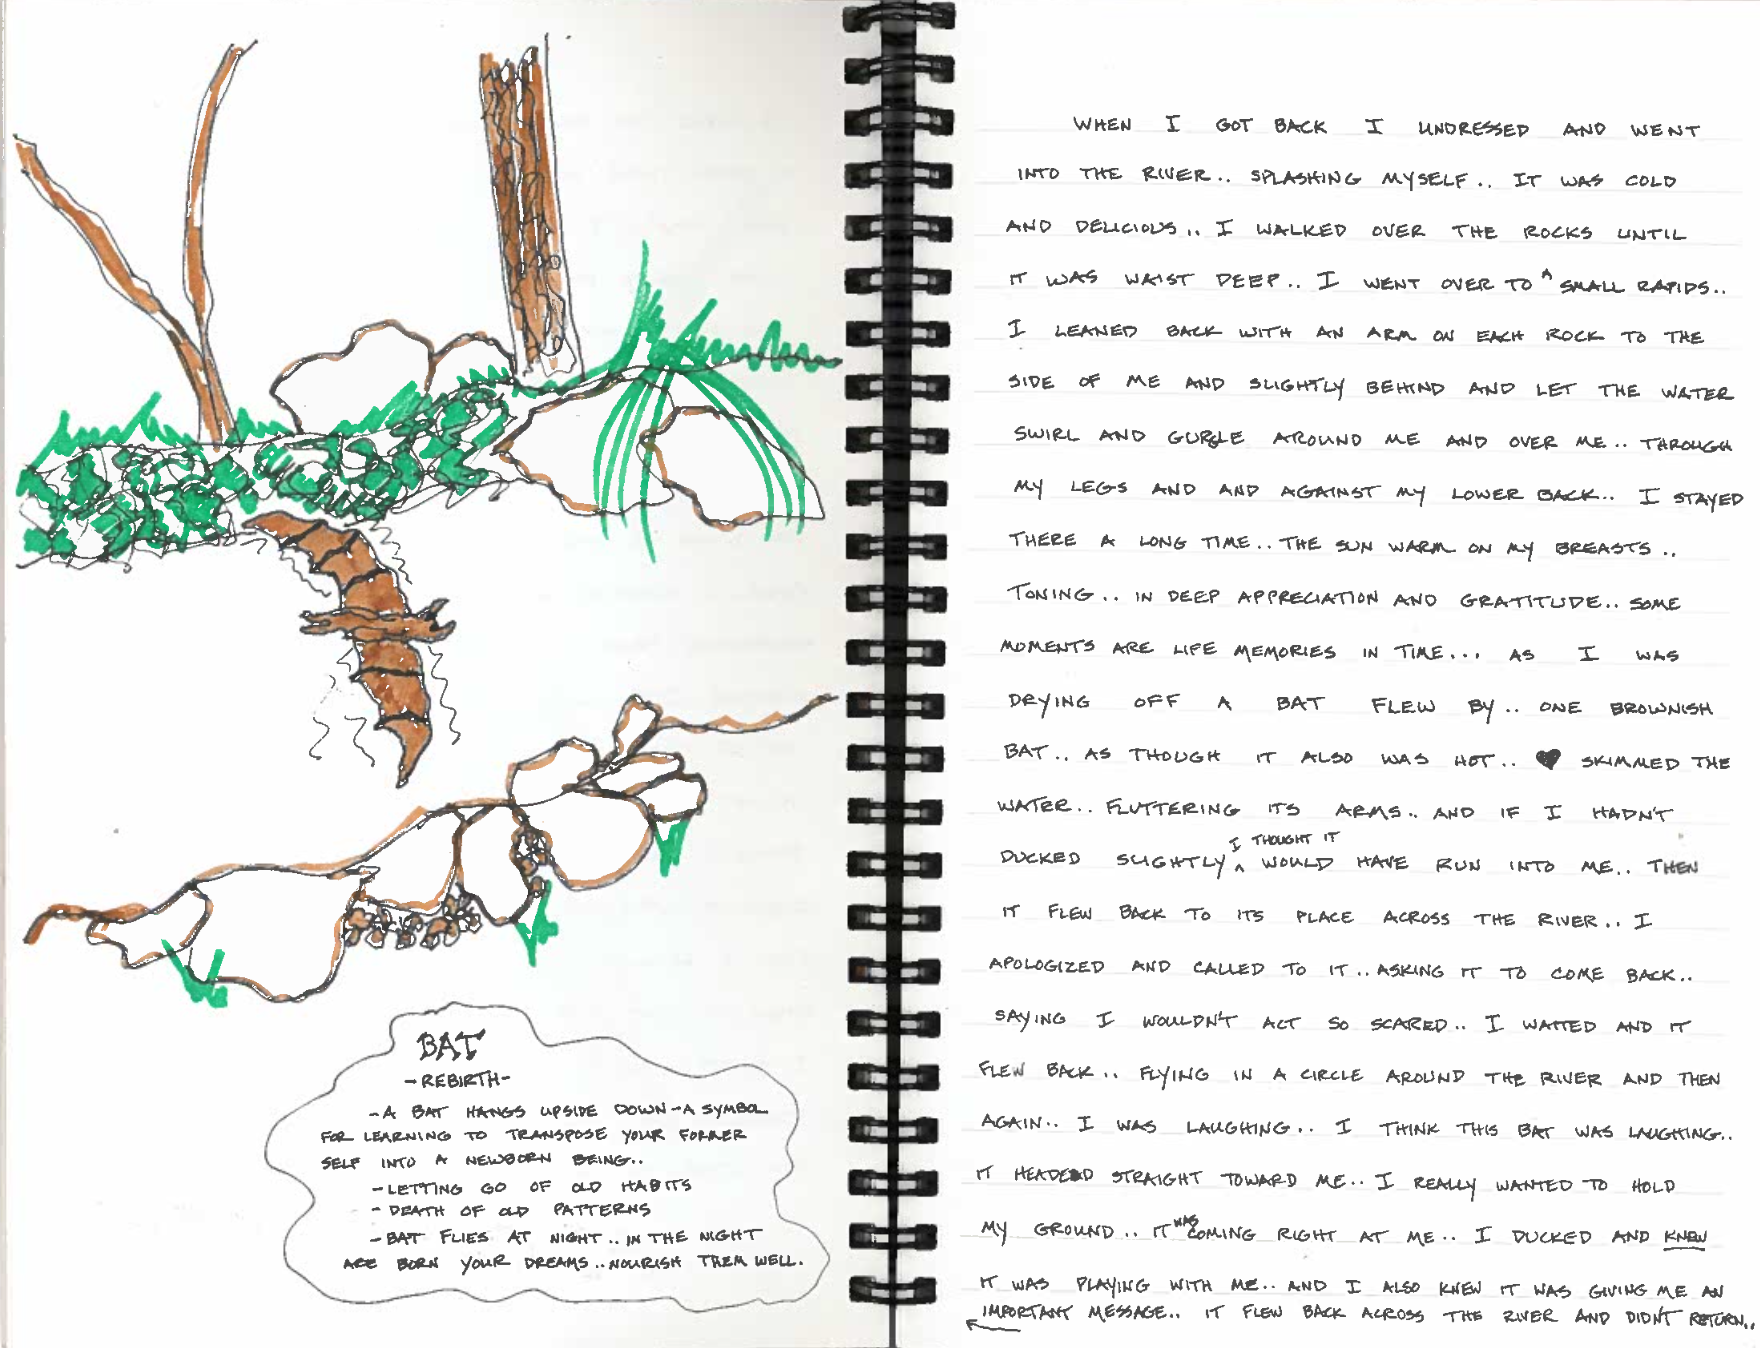 BAT
-REBIRTH-
-A BAT HANGS UPSIDE DOWN-A SYMBOL
FOR LEARNING TO TRANSPOSE YOUR FORMER
SELF INTO A NEWBORN BEING..
-LETTING GO OF OLD HABITS
-DEATH OF OLD PATTERNS
-BAT FLIES AT NIGHT.. IN THE NIGHT
ARE BORN YOUR DREAMS.. NOURISH THEM WELL.
WHEN I GOT BACK I UNDRESSED AND WENT
INTO THE RIVER.. SPLASHING MYSELF.. IT WAS COLD
AND DELICIOUS.. I WALKED OVER THE ROCKS UNTIL
IT WAS WAIST DEEP.. I WENT OVER TO A SMALL RAPIDS..
I LEANED BACK WITH AN ARM ON EACH ROCK TO THE
SIDE OF ME AND SLIGHTLY BEHIND AND LET THE WATER
SWIRL AND GURGLE AROUND ME AND OVER ME.. THROUGH
MY LEGS AND AND AGAINST MY LOWER BACK.. I STAYED
THERE A LONG TIME.. THE SUN WARM ON MY BREASTS..
TONING.. IN DEEP APPRECIATION AND GRATITUDE.. SOME
MOMENTS ARE LIFE MEMORIES IN TIME... AS I WAS
DRYING OFF A BAT FLEW BY.. ONE BROWNISH
BAT.. AS THOUGH IT ALSO WAS HOT.. ♥ SKIMMED THE
WATER.. FLUTTERING ITS ARMS.. AND IF I HADN'T
DUCKED SLIGHTLY I THOUGHT IT WOULD HAVE RUN INTO ME.. THEN
IT FLEW BACK TO ITS PLACE ACROSS THE RIVER.. I
APOLOGIZED AND CALLED TO IT.. ASKING IT TO COME BACK..
SAYING I WOULDN'T ACT SO SCARED.. I WAITED AND IT
FLEW BACK.. FLYING IN A CIRCLE AROUND THE RIVER AND THEN
AGAIN.. I WAS LAUGHING.. I THINK THIS BAT WAS LAUGHING..
IT HEADED STRAIGHT TOWARD ME.. I REALLY WANTED TO HOLD
MY GROUND.. IT WAS COMING RIGHT AT ME.. I DUCKED AND KNEW
IT WAS PLAYING WITH ME.. AND I ALSO KNEW IT WAS GIVING ME AN
IMPORTANT MESSAGE.. IT FLEW BACK ACROSS THE RIVER AND DIDN'T RETURN..